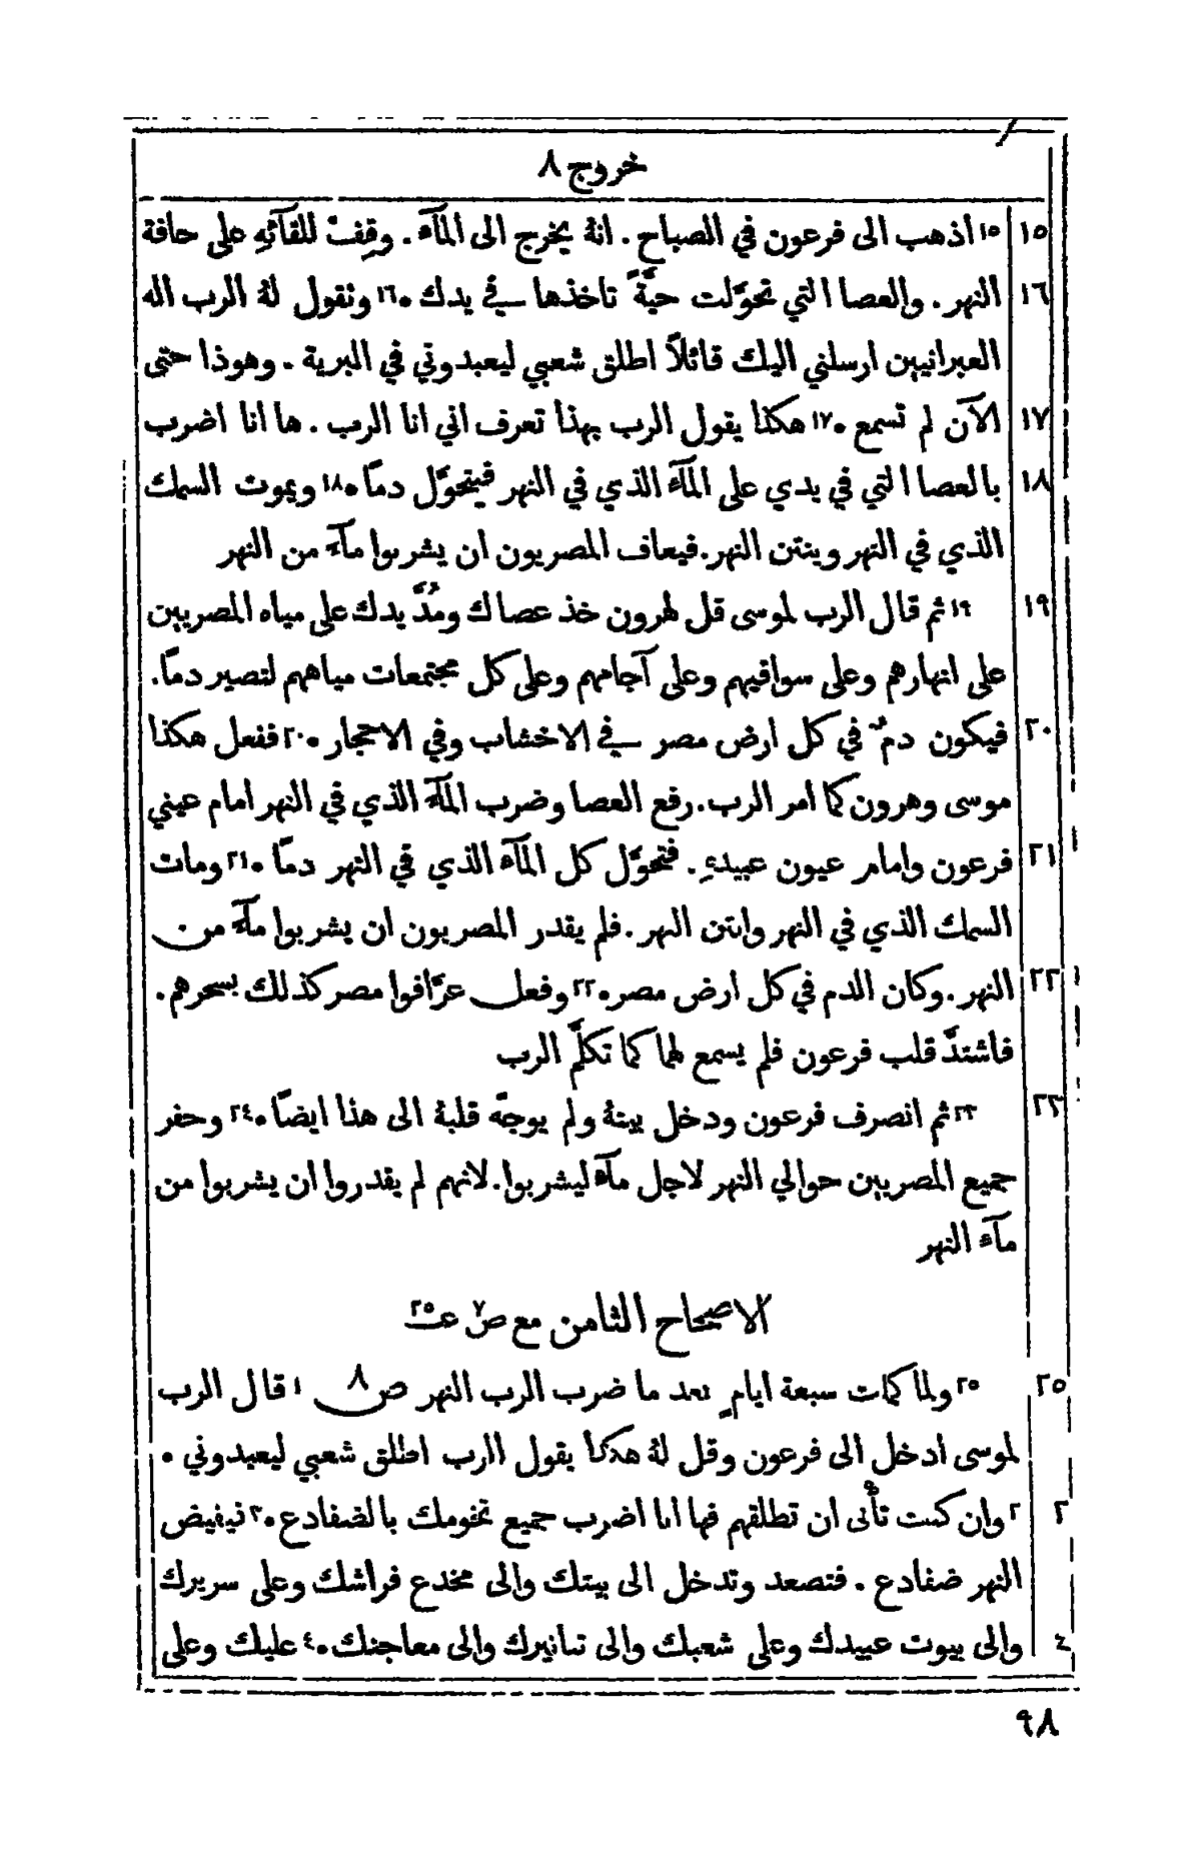 خروج ٨
١٥ ١٥ اذهب الى فرعون في الصباح . انهُ يخرج الى المآء . وقِفْ للقآئِهِ على حافة
١٦ النهر . والعصا التي تحوَّلت حيَّةً تاخذها في يدك ٠ ١٦ ونقول لهُ الرب اله
العبرانيين ارسلني اليك قائلاً اطلق شعبي ليعبدوني في البرية . وهوذا حتى
١٧ الآن لم تسمع ٠ ١٧ هكذا يقول الرب بهذا تعرف اني انا الرب . ها انا اضرب
١٨ بالعصا التي في يدي على المآء الذي في النهر فيتحوَّل دمًا ٠ ١٨ ويموت السمك
الذي في النهر وينتن النهر . فيعاف المصريون ان يشربوا مآء من النهر
١٩ ١٩ ثم قال الرب لموسى قل لهرون خذ عصاك ومُدَّ يدك على مياه المصريين
على انهارهم وعلى سواقيهم وعلى آجامهم وعلى كل مجتمعات مياههم لتصير دمًا .
٢٠ فيكون دمٌ في كل ارض مصر في الاخشاب وفي الاحجار ٠ ٢٠ ففعل هكذا
موسى وهرون كما امر الرب . رفع العصا وضرب المآء الذي في النهر امام عيني
٢١ فرعون وامام عيون عبيدهِ . فتحوَّل كل المآء الذي في النهر دمًا ٠ ٢١ ومات
السمك الذي في النهر وانتن النهر . فلم يقدر المصريون ان يشربوا مآء من
٢٢ النهر . وكان الدم في كل ارض مصر ٠ ٢٢ وفعل عرَّافوا مصر كذلك بسحرهم .
فاشتدَّ قلب فرعون فلم يسمع لهما كما تكلَّم الرب
٢٣ ٢٣ ثم انصرف فرعون ودخل بيتهُ ولم يوجّه قلبهُ الى هذا ايضًا ٠ ٢٤ وحفر
جميع المصريين حوالي النهر لاجل مآء ليشربوا . لانهم لم يقدروا ان يشربوا من
مآء النهر
الاصحاح الثامن مع ص ٧ عد ٢٥
٢٥ ٢٥ ولما كملت سبعة ايامٍ بعد ما ضرب الرب النهر ص ٨ ١ قال الرب
لموسى ادخل الى فرعون وقل لهُ هكذا يقول الرب اطلق شعبي ليعبدوني ٠
٢ ٢ وان كنت تأبى ان تطلقهم فها انا اضرب جميع تخومك بالضفادع ٠ ٣ فيفيض
النهر ضفادع . فتصعد وتدخل الى بيتك والى مخدع فراشك وعلى سريرك
٤ والى بيوت عبيدك وعلى شعبك والى تنانيرك والى معاجنك ٠ ٤ عليك وعلى
٩٨